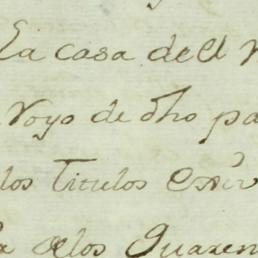 La casa de el
royo de dho pa
los Titulos
a de los Quaren